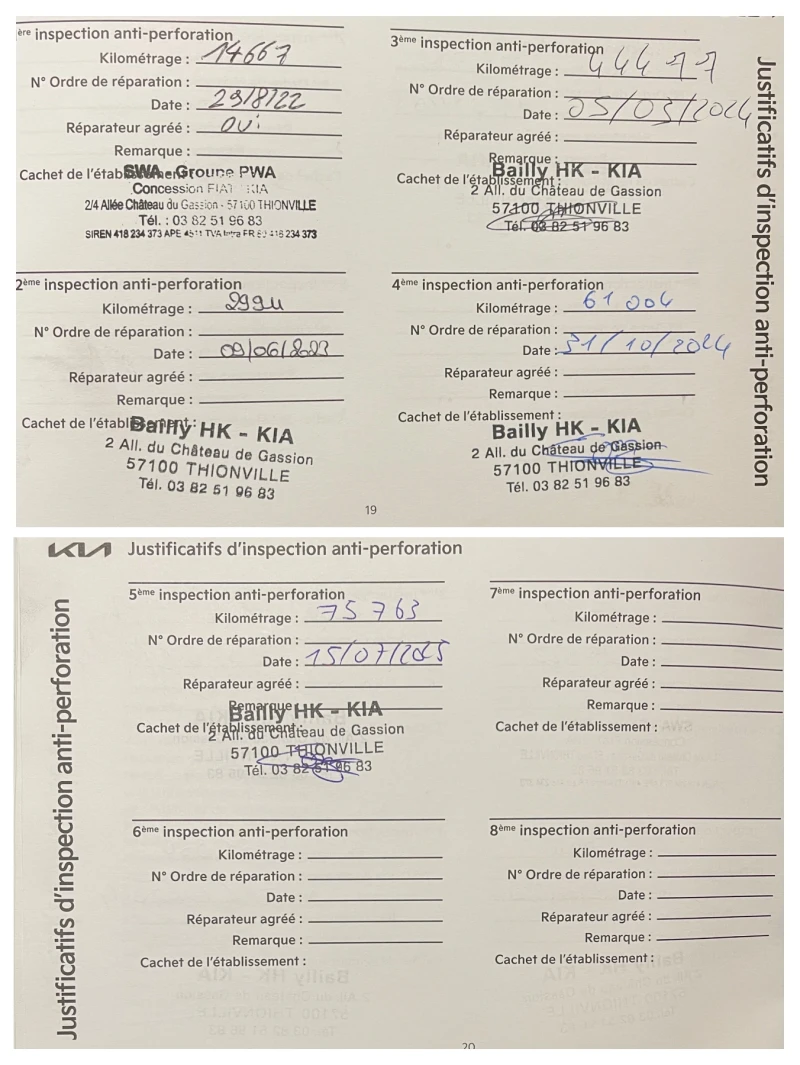 ère inspection anti-perforation
Kilométrage : 14667
N° Ordre de réparation :
Date : 29/8/22
Réparateur agréé : oui
Remarque :
Cachet de l'établissement :
SWA - Groupe PWA
Concession FIAT KIA
2/4 Allée Château du Gassion - 57100 THIONVILLE
Tél. : 03 82 51 96 83
SIREN 418 234 373 APE 4511 TVA Intra FR 418 234 373
2ème inspection anti-perforation
Kilométrage :
N° Ordre de réparation :
Date : 09/06/2023
Réparateur agréé :
Remarque :
Cachet de l'établissement :
Bailly HK - KIA
2 All. du Château de Gassion
57100 THIONVILLE
Tél. 03 82 51 96 83
3ème inspection anti-perforation
Kilométrage : 44477
N° Ordre de réparation :
Date : 05/03/2024
Réparateur agréé :
Remarque :
Cachet de l'établissement :
Bailly HK - KIA
2 All. du Château de Gassion
57100 THIONVILLE
Tél. 03 82 51 96 83
4ème inspection anti-perforation
Kilométrage : 61004
N° Ordre de réparation :
Date : 31/10/2024
Réparateur agréé :
Remarque :
Cachet de l'établissement :
Bailly HK - KIA
2 All. du Château de Gassion
57100 THIONVILLE
Tél. 03 82 51 96 83
Justificatifs d'inspection anti-perforation
19
KIA Justificatifs d'inspection anti-perforation
Justificatifs d'inspection anti-perforation
5ème inspection anti-perforation
Kilométrage : 75763
N° Ordre de réparation :
Date : 15/07/2025
Réparateur agréé :
Remarque :
Cachet de l'établissement :
Bailly HK - KIA
2 All. du Château de Gassion
57100 THIONVILLE
Tél. 03 82 51 96 83
6ème inspection anti-perforation
Kilométrage :
N° Ordre de réparation :
Date :
Réparateur agréé :
Remarque :
Cachet de l'établissement :
7ème inspection anti-perforation
Kilométrage :
N° Ordre de réparation :
Date :
Réparateur agréé :
Remarque :
Cachet de l'établissement :
8ème inspection anti-perforation
Kilométrage :
N° Ordre de réparation :
Date :
Réparateur agréé :
Remarque :
Cachet de l'établissement :
20